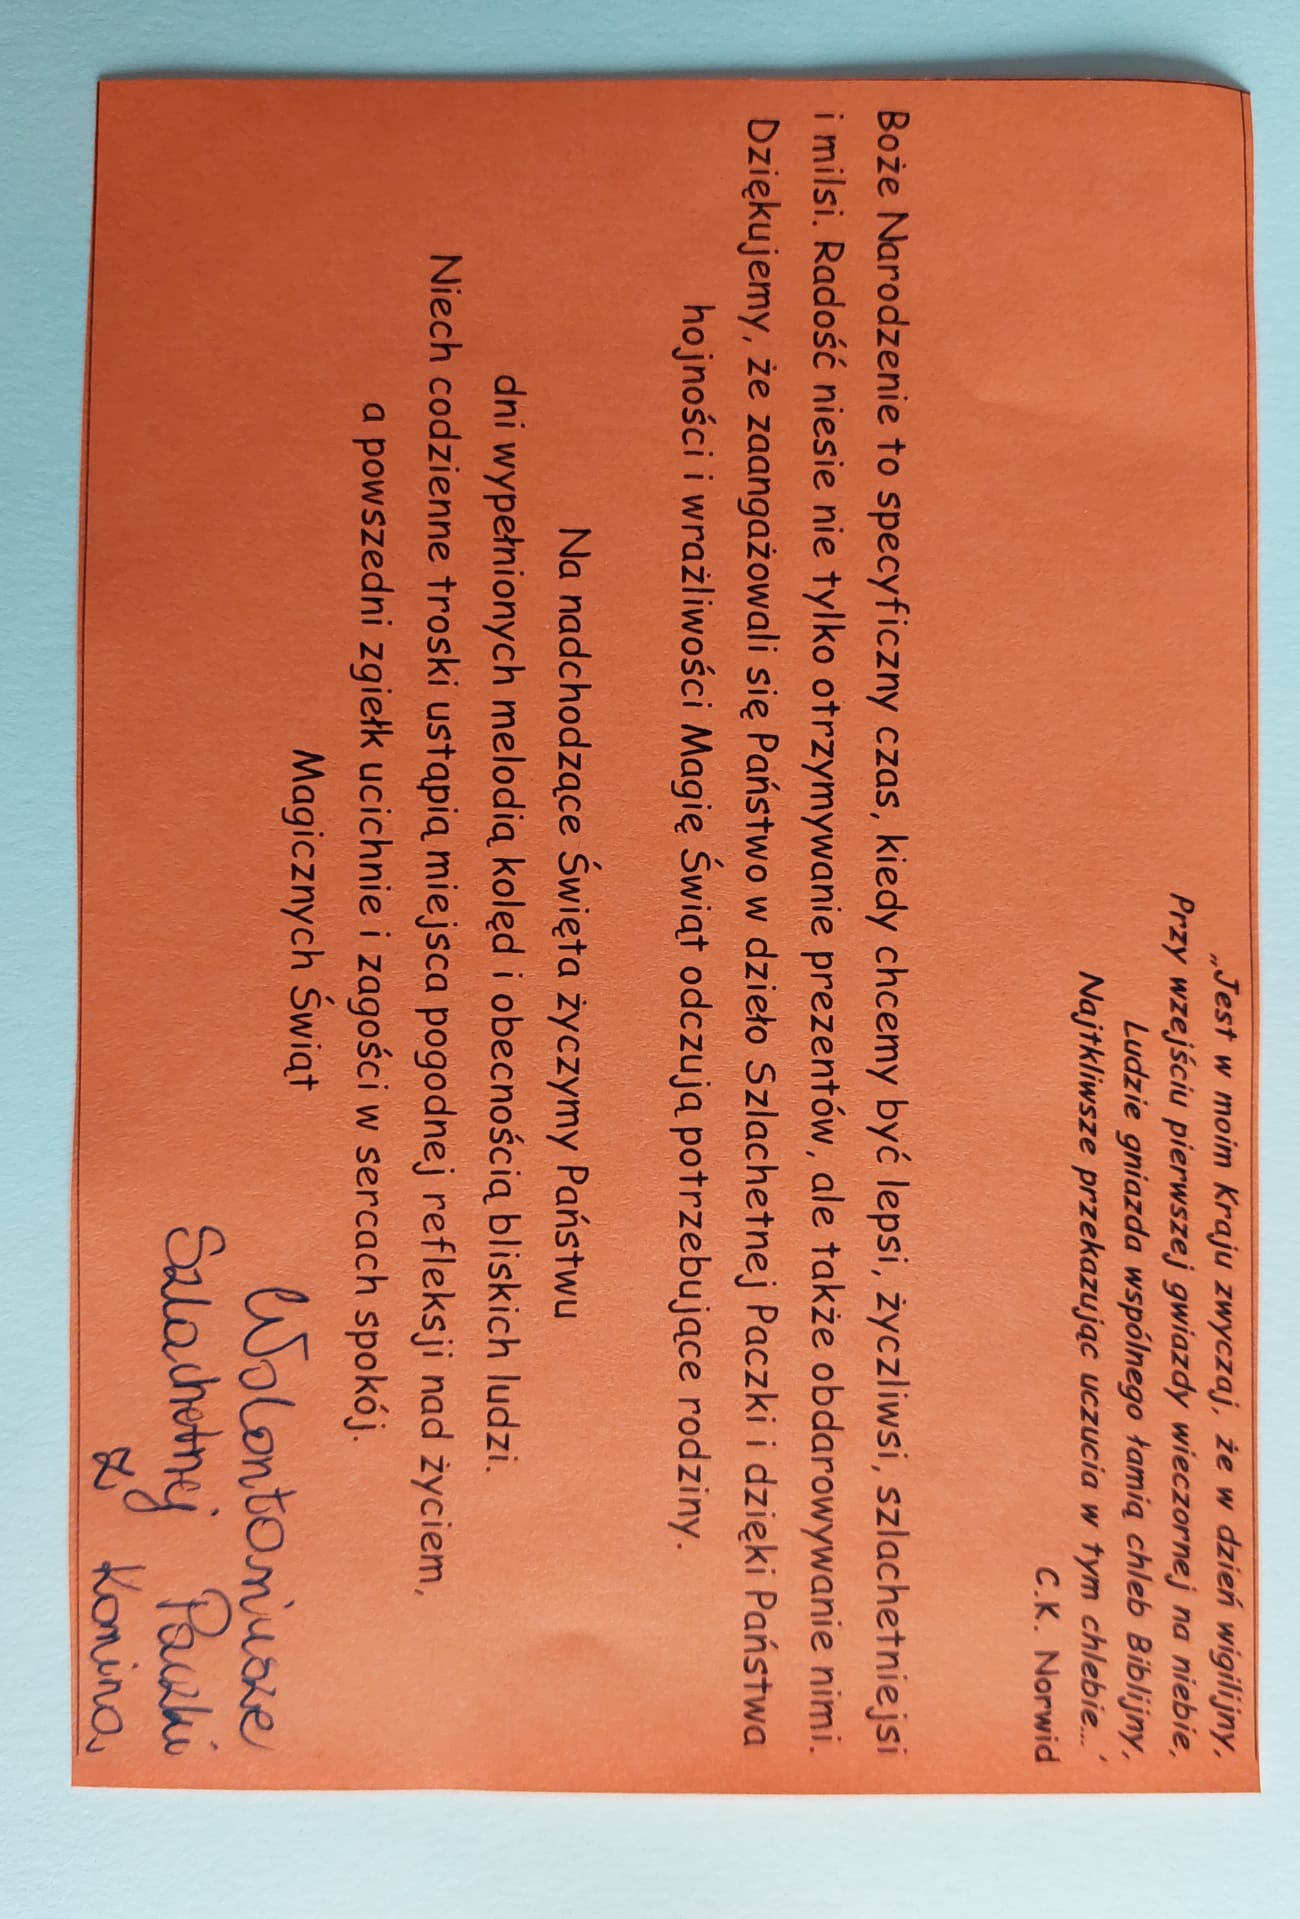 „Jest w moim Kraju zwyczaj, że w dzień wigilijny,
Przy wzejściu pierwszej gwiazdy wieczornej na niebie,
Ludzie gniazda wspólnego łamią chleb Biblijny,
Najtkliwsze przekazując uczucia w tym chlebie...’
C.K. Norwid
Boże Narodzenie to specyficzny czas, kiedy chcemy być lepsi, życzliwsi, szlachetniejsi
i milsi. Radość niesie nie tylko otrzymywanie prezentów, ale także obdarowywanie nimi.
Dziękujemy, że zaangażowali się Państwo w dzieło Szlachetnej Paczki i dzięki Państwa
hojności i wrażliwości Magię Świąt odczują potrzebujące rodziny.
Na nadchodzące Święta życzymy Państwu
dni wypełnionych melodią kolęd i obecnością bliskich ludzi.
Niech codzienne troski ustąpią miejsca pogodnej refleksji nad życiem,
a powszedni zgiełk ucichnie i zagości w sercach spokój.
Magicznych Świąt
Wolontariusze
Szlachetnej Paczki
z Konina